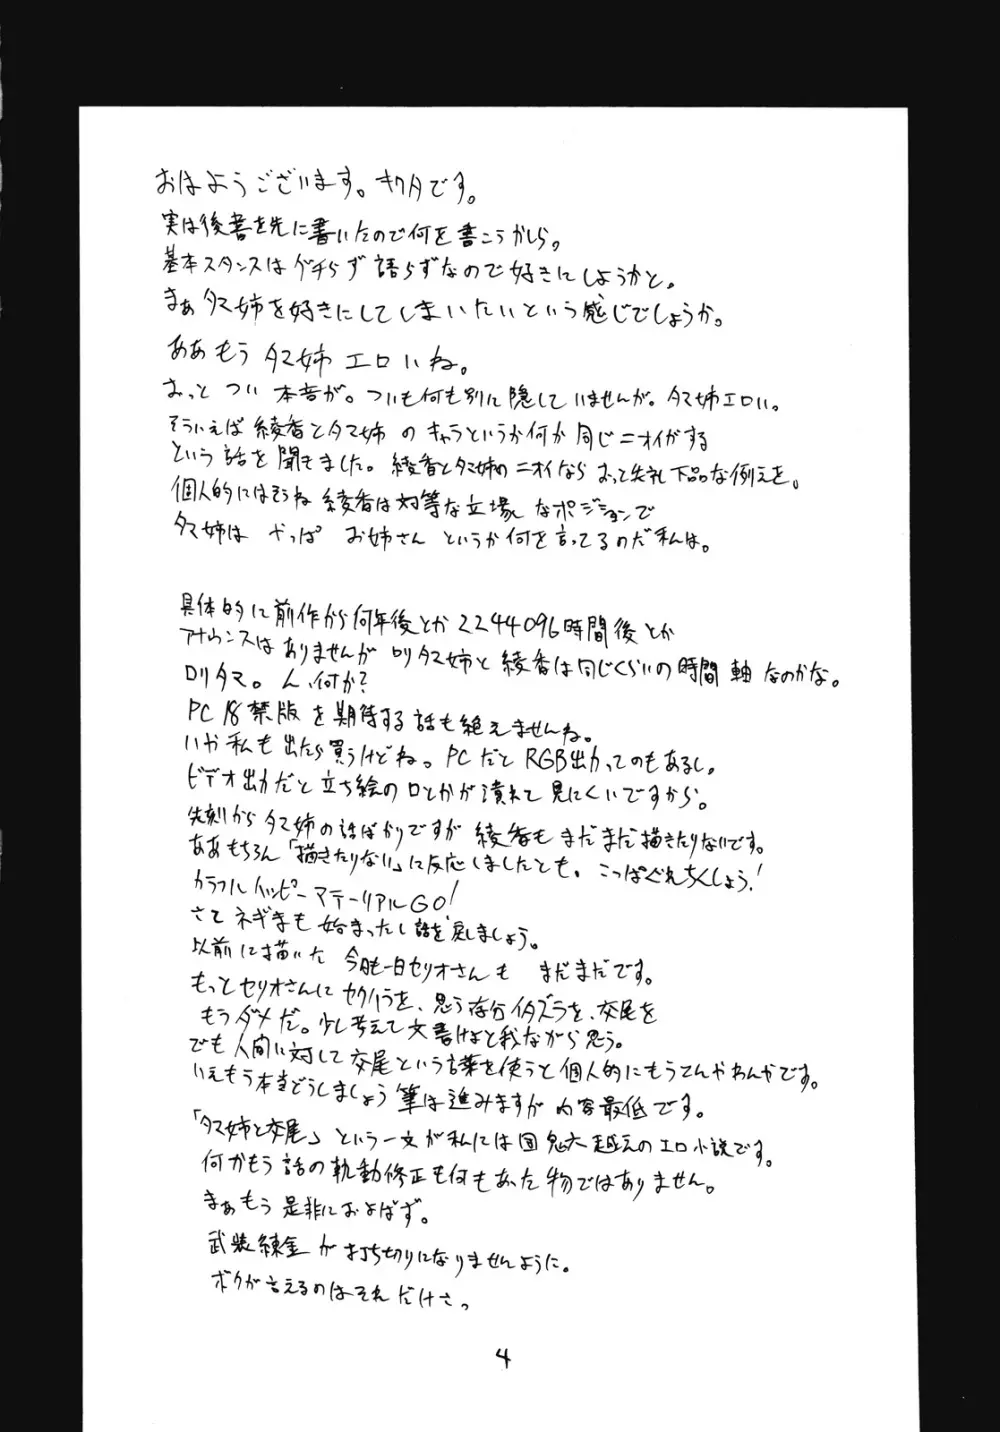 おはようございます。キクタです。
実は後書を先に書いたので何を書こうかしら。
基本スタンスはゲチらず語らずなので好きにしようかと。
まぁタマ姉を好きにしてしまいたいという感じでしょうか。
ああもうタマ姉エロいね。
おっとつい本音が。ついも何も別に隠していませんが。タマ姉エロい。
そういえば綾香とタマ姉のキャラというか何か同じニオイがする
という話を聞きました。綾香とタマ姉のニオイならおっと失礼下品な例えを。
個人的にはそうね綾香は対等な立場なポジションで
タマ姉はやっぱお姉さんというか何を言ってるのだ私は。
具体的に前作から何年後とか2244096時間後とか
アナウンスはありませんがロリタマ姉と綾香は同じくらいの時間軸なのかな。
ロリタマ。ん、何か?
PC18禁版を期待する話も絶えませんね。
いや私も出たら買うけどね。PCだとRGB出力ってのもあるし。
ビデオ出力だと立ち絵の口とかが潰れて見にくいですから。
先刻からタマ姉の話ばかりですが綾香もまだまだ描きたりないです。
ああもちろん「描きたりない」に反応しましたとも。こっぱぐれちくしょう!
カラフルハッピーマテーリアルGO!
さてネギまも始まったし話を戻しましょう。
以前に描いた今日も一日セリオさんもまだまだです。
もっとセリオさんにセクハラを、思う存分イタズラを、交尾を
もうダメだ。少し考えて文書けよと我ながら思う。
でも人間に対して交尾という言葉を使うと個人的にもうてんやわんやです。
いえもう本当どうしましょう筆は進みますが内容最低です。
「タマ姉と交尾」という一文が私には団鬼六越えのエロ小説です。
何かもう話の軌動修正も何もあった物ではありません。
まぁもう是非におよばず。
武装錬金が打ち切りになりませんように。
ボクが言えるのはそれだけさっ
4